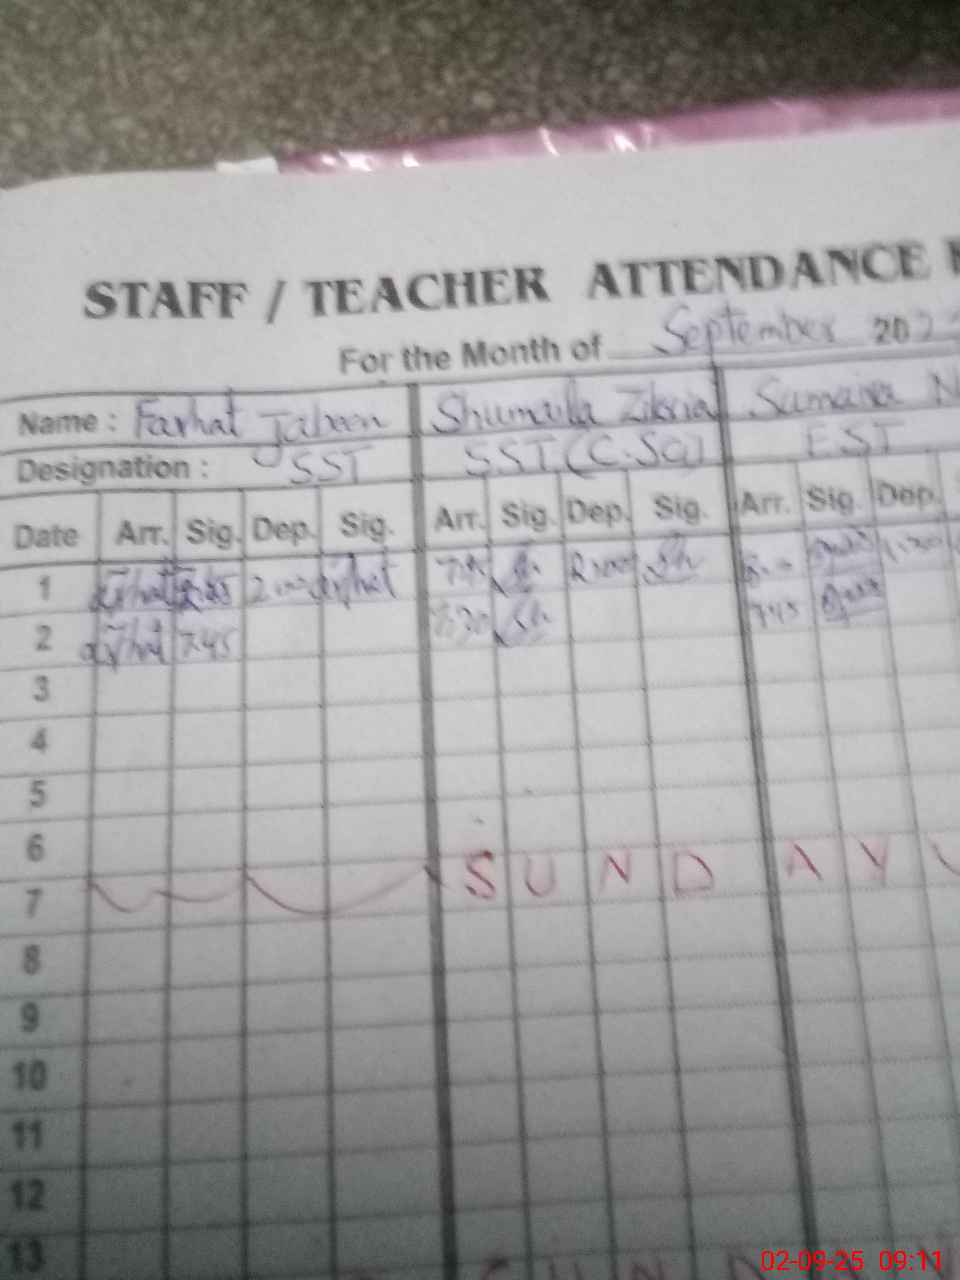 STAFF / TEACHER ATTENDANCE
For the Month of September 202
Name : Farhat Jabeen Shumaila Zikria Sumaira N
Designation : SST SST (C.Sc) EST
Date Arr. Sig. Dep. Sig. Arr. Sig. Dep. Sig. Arr. Sig. Dep.
1 Farhat 2:00 Farhat 7:45 Sh. 2:00 Sh
2 Farhat 7:45 Sh. 7:45
3
4
5
6
7 SUNDAY
8
9
10
11
12
13
02-09-25 09:11